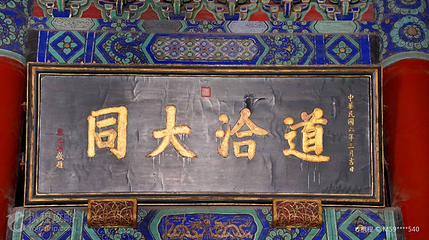 道洽大同
中華民國八年三月吉日
敬題
携程 © M59****540